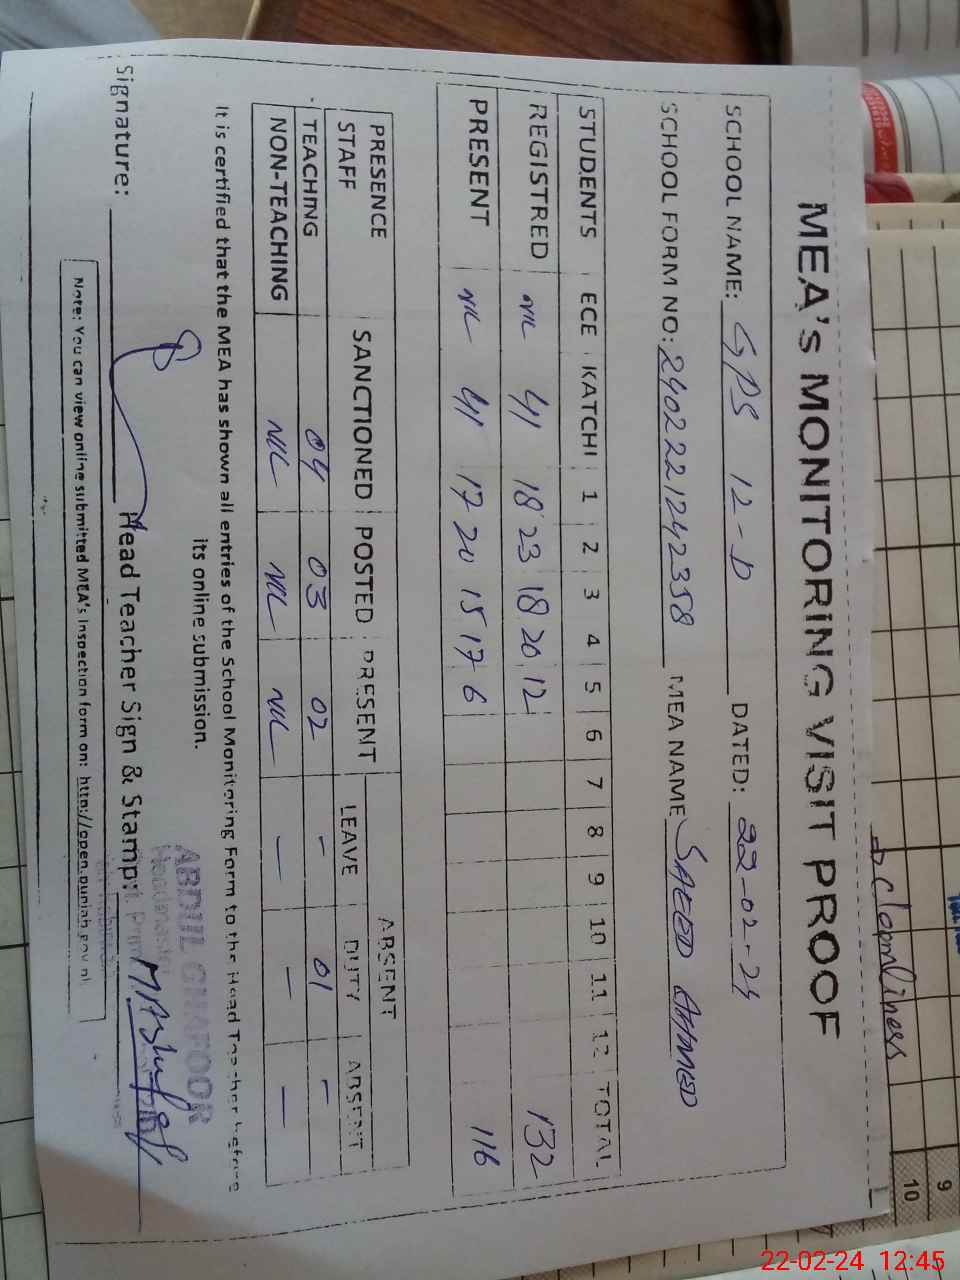 MEA's MONITORING VISIT PROOF
SCHOOL NAME: GPS 12-D DATED: 22-02-24
SCHOOL FORM NO: 2402221242358 MEA NAME SAEED AHMED
STUDENTS ECE KATCHI 1 2 3 4 5 6 7 8 9 10 11 12 TOTAL
REGISTRED NIL 41 18 23 18 20 12 132
PRESENT NIL 41 17 20 15 17 6 116
PRESENCE ABSENT
STAFF SANCTIONED POSTED PRESENT LEAVE DUTY ABSENT
TEACHING 04 03 02 - 01 -
NON-TEACHING NIL NIL NIL - - -
It is certified that the MEA has shown all entries of the School Monitoring Form to the Head Teacher before
its online submission.
ABDUL GHAFOOR
Headmaster
Signature: Head Teacher Sign & Stamp:
Note: You can view online submitted MEA's Inspection form on: http://open.punjab.gov.pk
Cleanliness
9
10
22-02-24 12:45